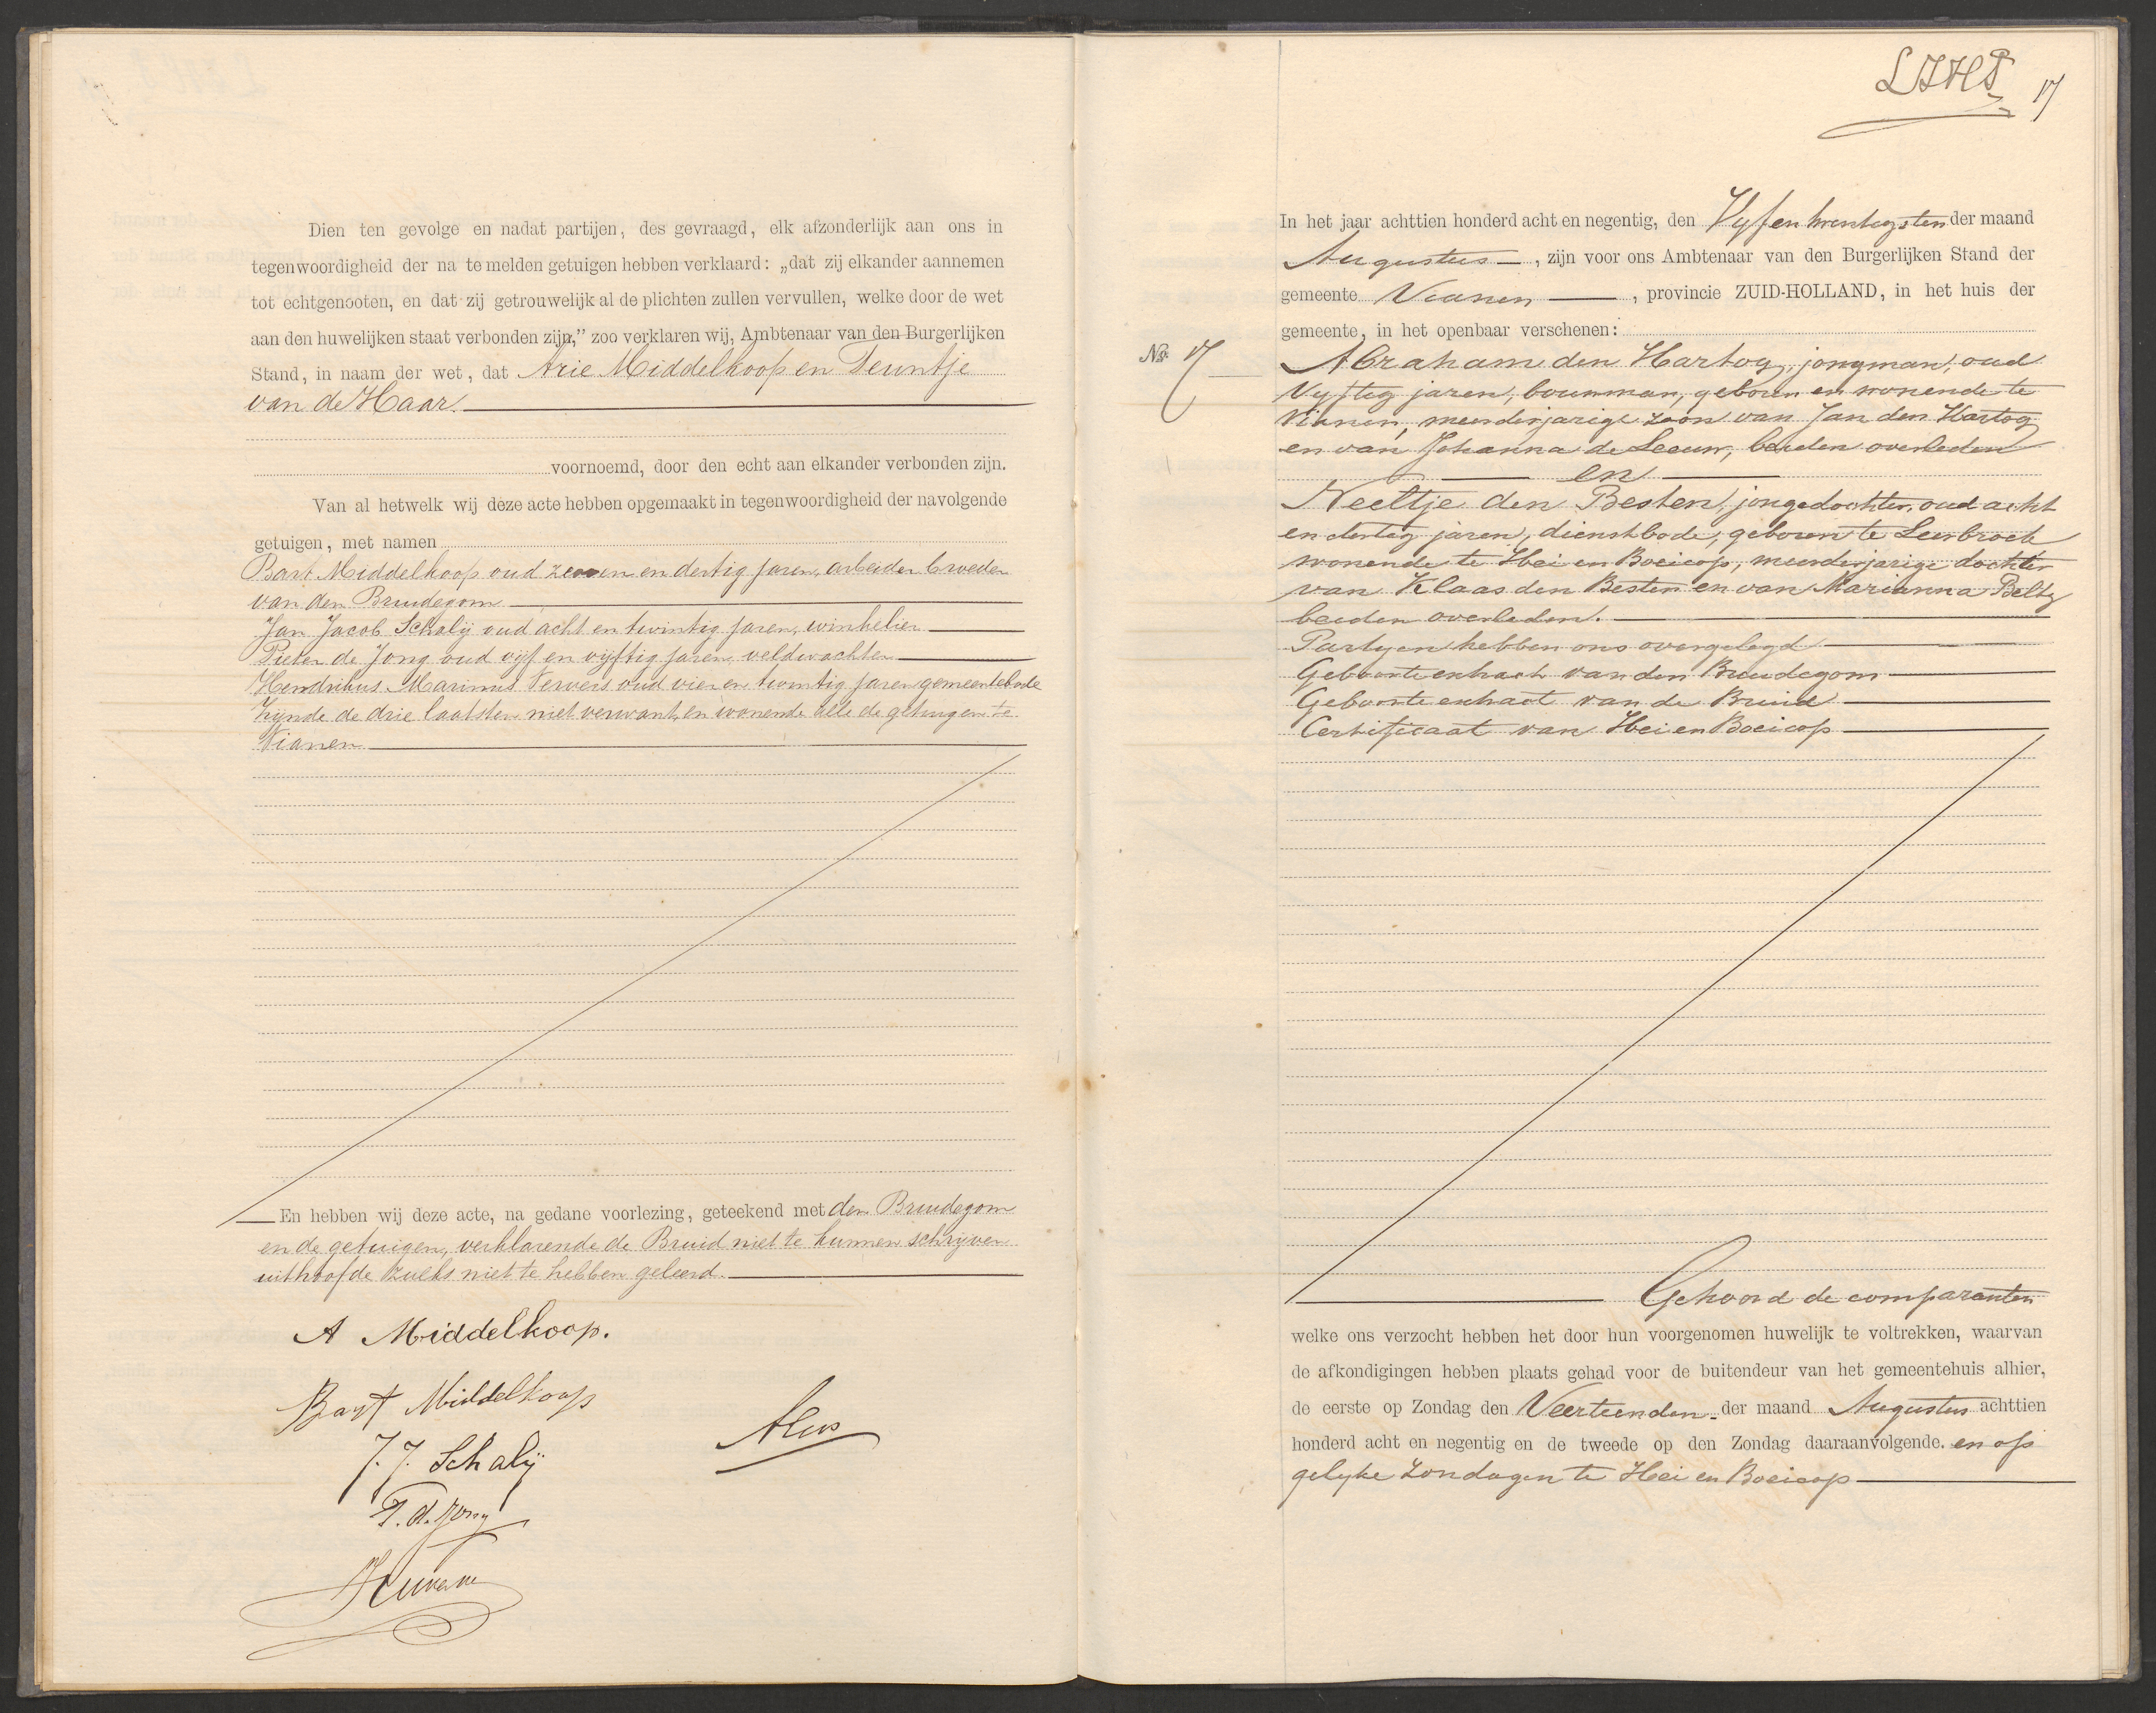 Dien ten gevolge en nadat partijen, des gevraagd, elk afzonderlijk aan ons in
tegenwoordigheid der na te melden getuigen hebben verklaard: „dat zij elkander aannemen
tot echtgenooten, en dat zij getrouwelijk al de plichten zullen vervullen, welke door de wet
aan den huwelijken staat verbonden zijn,” zoo verklaren wij, Ambtenaar van den Burgerlijken
Stand, in naam der wet, dat Arie Middelkoop en Teuntje
van de Haar.
voornoemd, door den echt aan elkander verbonden zijn.
Van al hetwelk wij deze acte hebben opgemaakt in tegenwoordigheid der navolgende
getuigen, met namen
Bart Middelkoop oud zeven en dertig jaren, arbeider broeder
van den Bruidegom
Jan Jacob Schalij oud acht en twintig jaren, winkelier
Pieter de Jong oud vijf en vijftig jaren veldwachter
Hendrikus Marinus Ververs oud vier en twintig jaren gemeentebode
zijnde de drie laatsten niet verwant en wonende alle de getuigen te
Vianen
En hebben wij deze acte, na gedane voorlezing, geteekend met den Bruidegom
en de getuigen, verklarende de Bruid niet te kunnen schrijven
uithoofde zulks niet te hebben geleerd.
A Middelkoop.
Bart Middelkoop
J. J. Schalij
P. d. Jong
17
In het jaar achttien honderd acht en negentig, den Vyf en twentigsten der maand
Augustus, zijn voor ons Ambtenaar van den Burgerlijken Stand der
gemeente Vianen, provincie ZUID-HOLLAND, in het huis der
gemeente, in het openbaar verschenen:
No. 17
Abraham den Hartog, jongman, oud
Vyftig jaren, bouwman, geboren en wonende te
Vianen, meerderjarige zoon van Jan den Hartog
en van Johanna de Leeuw, beiden overleden
en
Neeltje den Besten, jongedochter, oud acht
en dertig jaren, dienstbode, geboren te Leerbroek
wonende te Hei en Boeicop, meerderjarige dochter
van Klaas den Besten en van Marianna Beltz
beiden overleden.
Partyen hebben ons overgelegd
Geboorteextract van den Bruidegom
Geboorteextract van de Bruid
Certificaat van Hei en Boeicop
Gehoord de comparanten
welke ons verzocht hebben het door hun voorgenomen huwelijk te voltrekken, waarvan
de afkondigingen hebben plaats gehad voor de buitendeur van het gemeentehuis alhier,
de eerste op Zondag den Veertienden der maand Augustus achttien
honderd acht en negentig en de tweede op den Zondag daaraanvolgende. en op
gelyke Zondagen te Hei en Boeicop